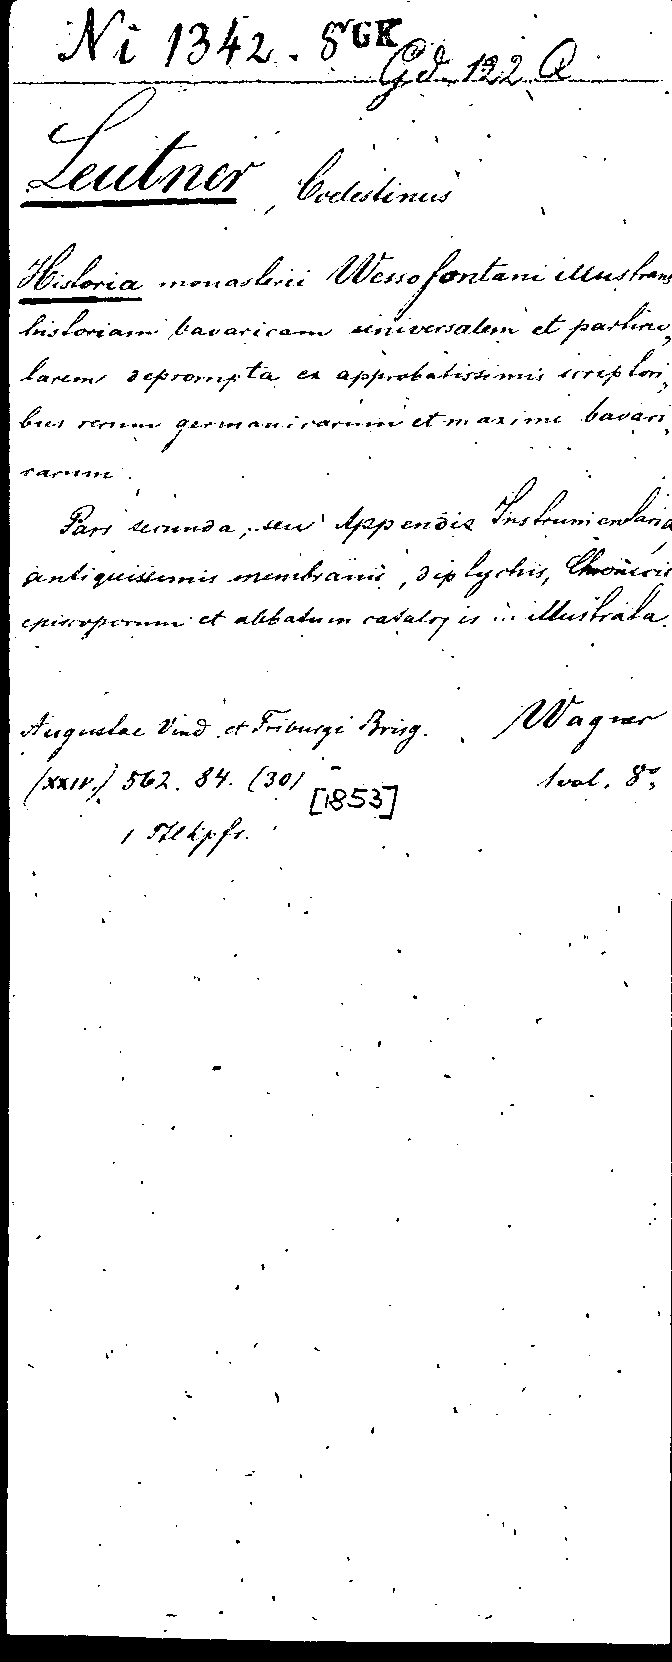 Ni 1342. 8° GK
Gd. 122 Q
Leutner, Coelestinus
Historia monasterii Wessofontani illustrans
historiam bavaricam universalem et particu,
larem deprompta ex approbatissimis scriptori,
bus rerum germanicarum et maxime bavari,
carum.
Pars secunda, seu Appendix Instrumentaria
antiquissimis membranis, diptychis, Chronicis
episcoporum et abbatum catalogis ... illustrata.
Augustae Vind. et Friburgi Brisg. Wagner
(XXIV.) 562. 84. (30) 1 vol. 8°,
[1853]
1 Ttlkpfr.